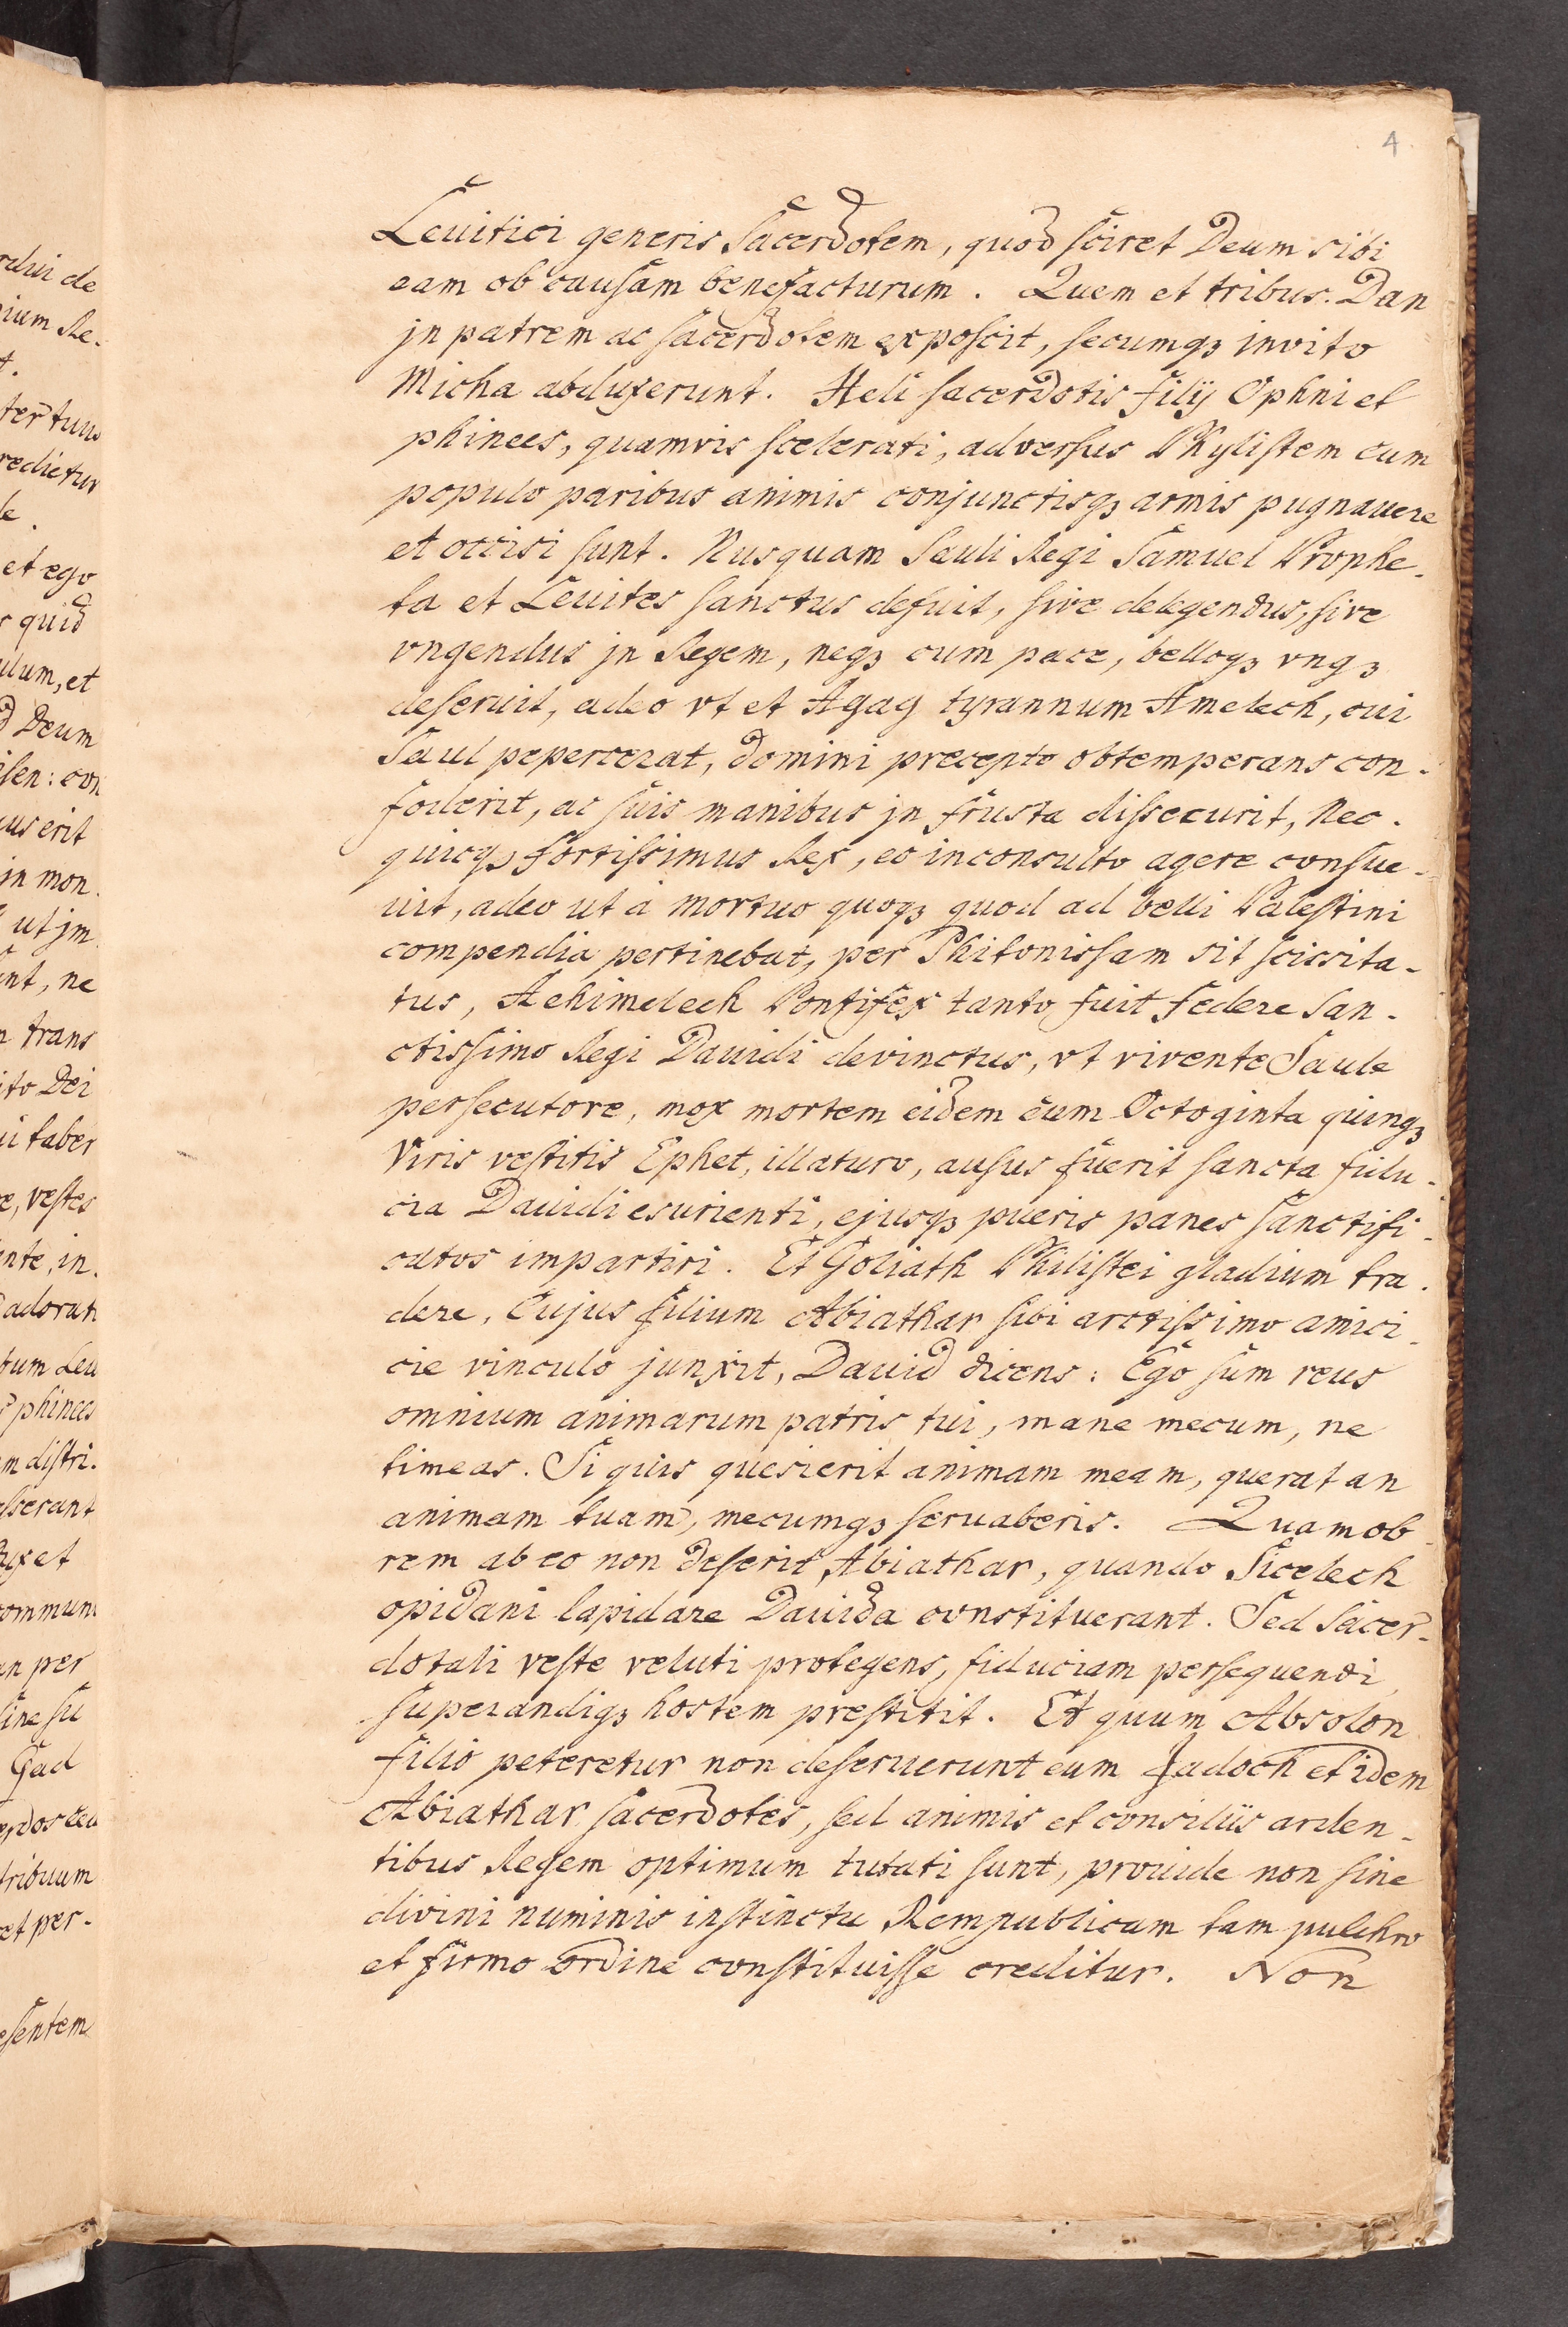 4
Leuitici generis Sacerdotem, quod sciret Deum sibi
eam ob causam benefacturum. Quem et tribus. Dan
jn patrem ac sacerdotem exposcit, secumqꝫ invito
Micha abduxerunt. Heli sacerdotis filij Ophni et
phinees, quamvis scelerati, adversus Phylistem cum
populo paribus animis conjunctisqꝫ armis pugnauere
et occisi sunt. Nusquam Sauli Regi Samuel Prophe-
ta et Leuites sanctus defuit, sive delegendus, sive
vngendus jn Regem, neqꝫ cum pace, belloqꝫ vnqꝫ
deseruit, adeo vt et Agag tyrannum Amelech, cui
Saul pepercerat, domini precepto obtemperans con-
foderit, ac suis manibus jn frusta dissecurit, Nec.
quicqꝫ fortissimus Rex, eo inconsulto agere consue-
uit, adeo ut à mortuo quoqꝫ quod ad belli Palestini
compendia pertinebat, per Phitonissam sit sciscita-
tus, Achimelech Pontifex tanto fuit federe san-
ctissimo Regi Dauidi devinctus, vt vivente Saule
persecutore, mox mortem eidem cum Octoginta quinqꝫ
Viris vestitis Ephet, illaturo, ausus fuerit sancta fidu-
cia Dauidi esurienti, ejusqꝫ pueris panes sanctifi-
catos impartiri. Et Goliath Philistei gladium tra-
dere, Cujus filium Abiathar sibi arctissimo amici-
cie vinculo junxit, Dauid dicens: Ego sum reus
omnium animarum patris tui, mane mecum, ne
timeas. Si quis quesierit animam meam, querat an
animam tuam, mecumqꝫ seruaberis. Quamob
rem ab eo non deserit Abiathar, quando Sicelech
opidani lapidare Dauida constituerant. Sed sacer-
dotali veste veluti protegens, fiduciam persequendi
superandiqꝫ hostem prestitit. Et quum Absolon
filio peteretur non deseruerunt eum Jadoch et idem
Abiathar sacerdotes, sed animis et consiliis arden-
tibus Regem optimum tutati sunt, prouide non sine
divini numinis instinctu Rempublicam tam pulchro
et firmo ordine constituisse creditur. Non